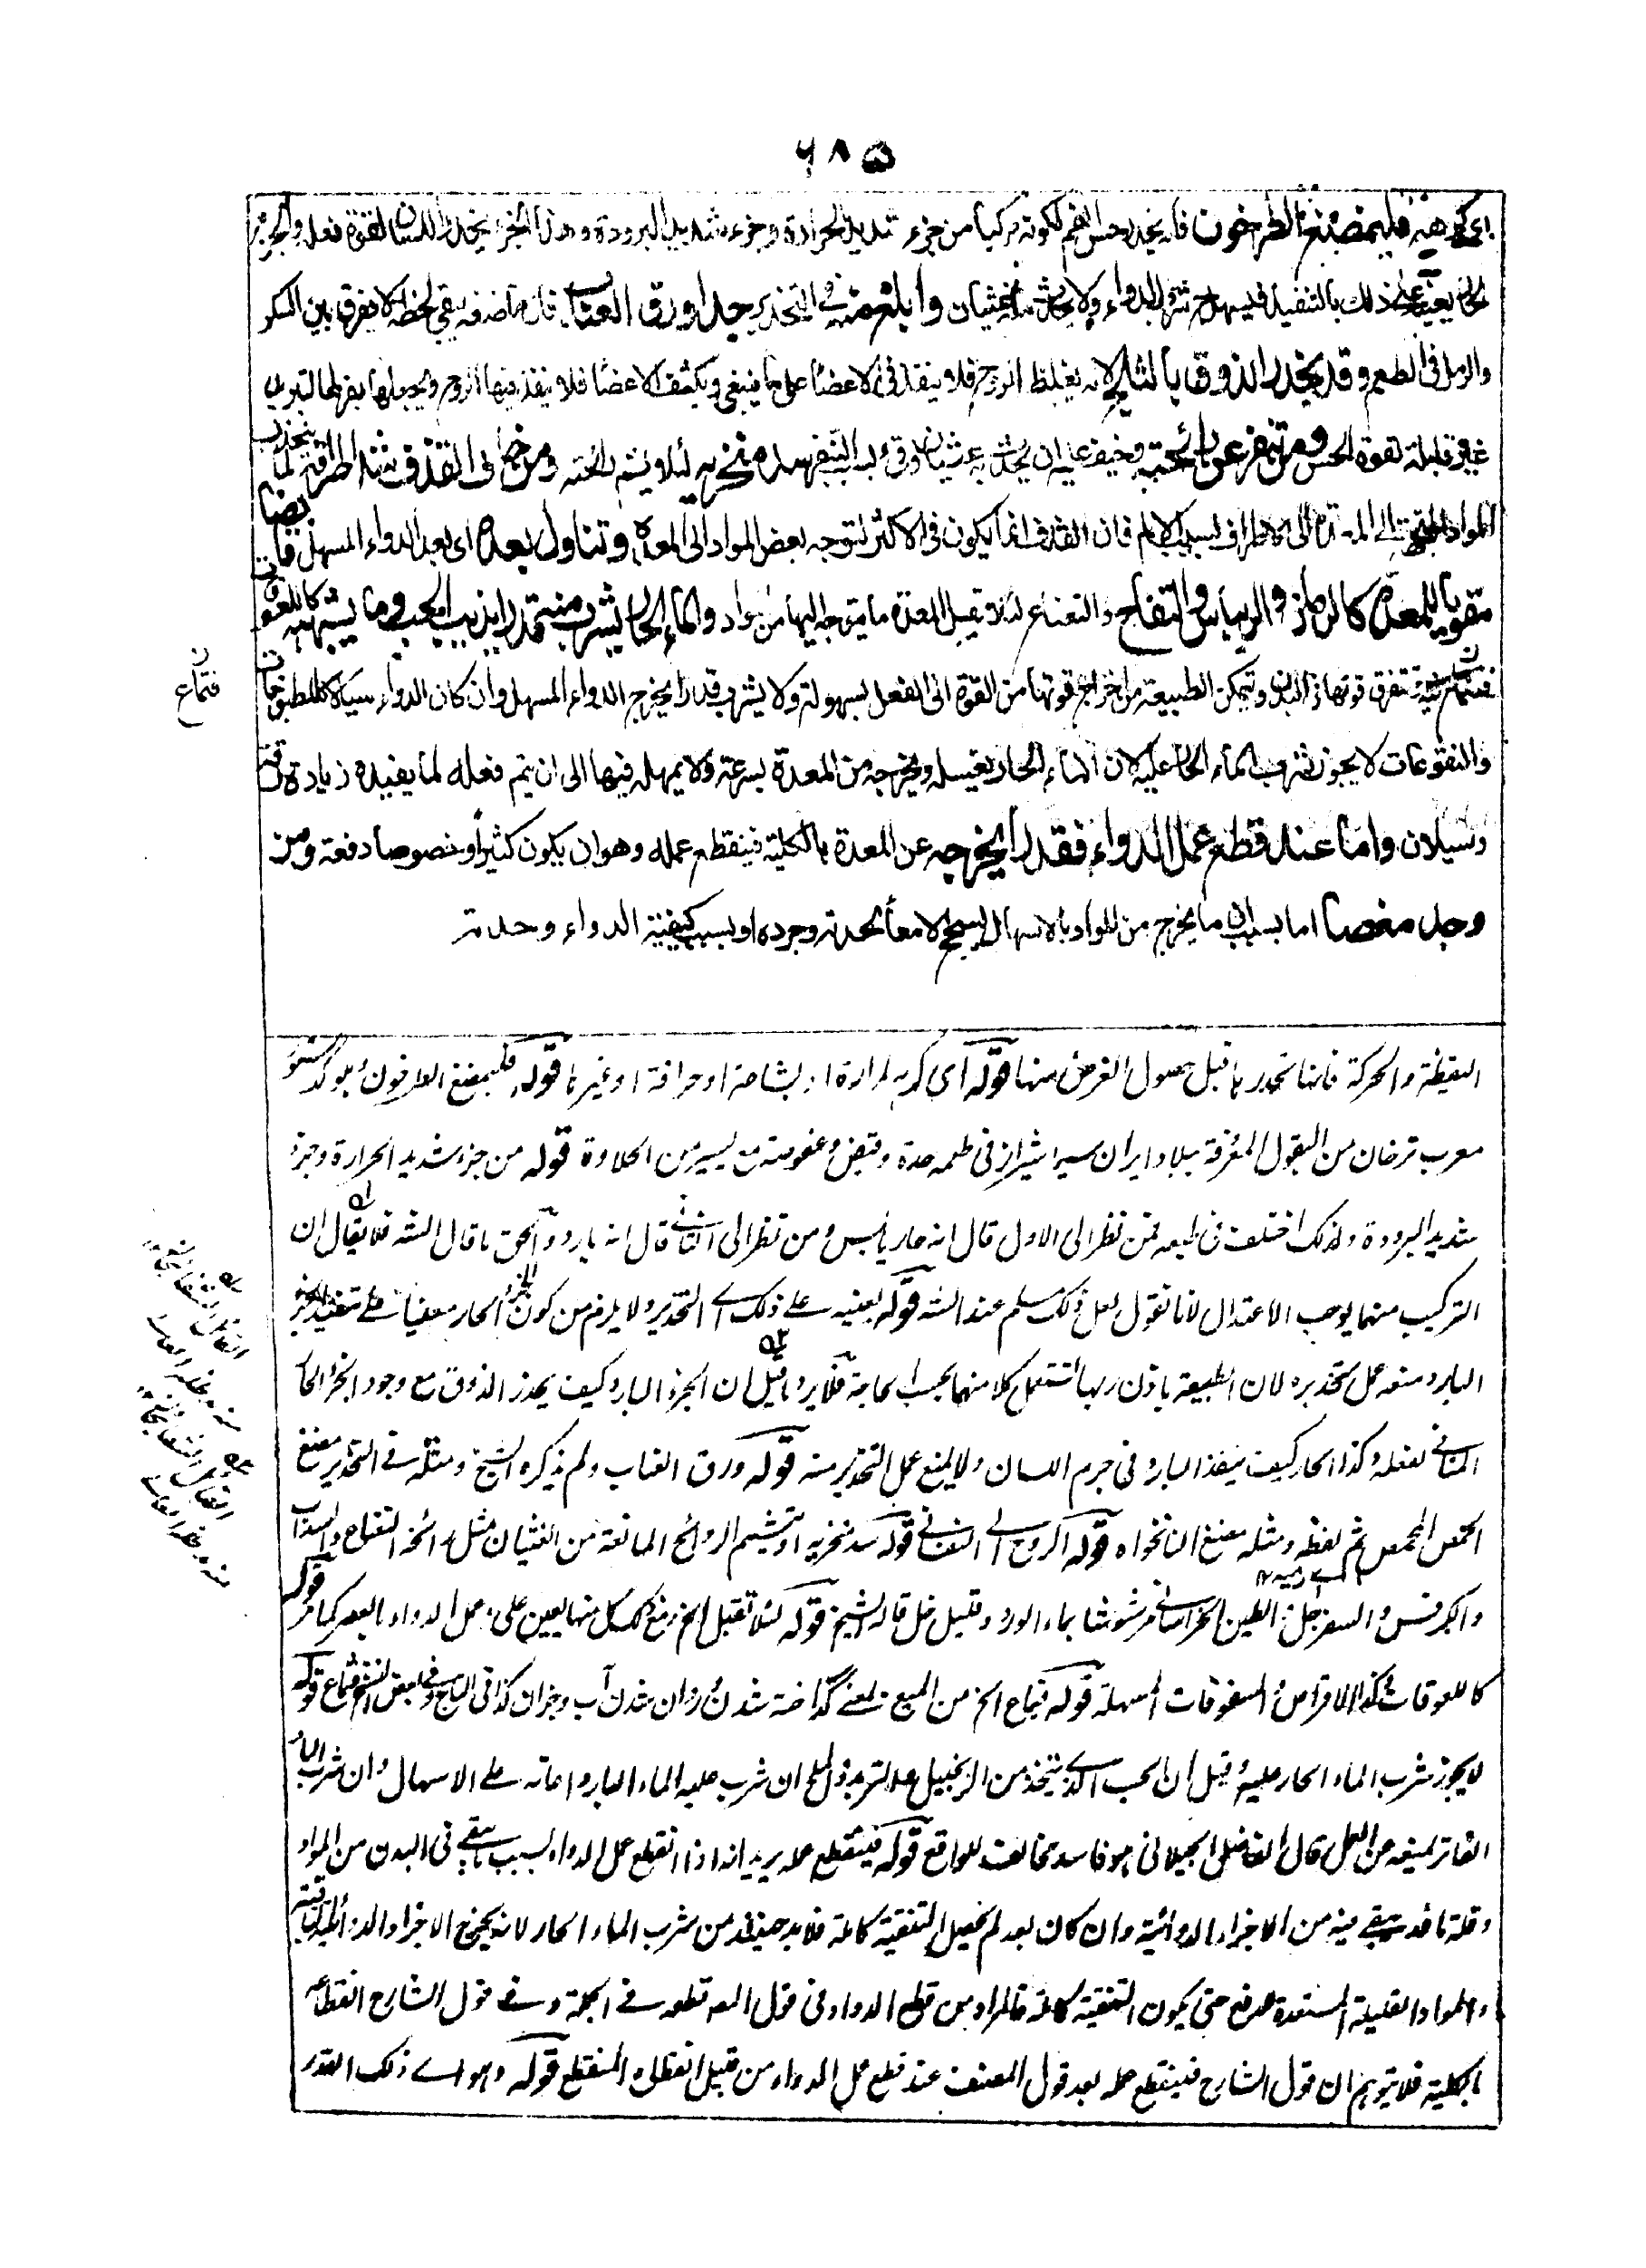 ٦٨٥
اى كريهة فليمضغ الطرخون فانه يخدر حس الفم لكونه مركبا من جزء شديد الحرارة وجزء شديد البرودة وهذا الجزء يخدر اللسان لقوة فعله والجزء
الحار يعينه على ذلك بالتنفيذ فيسهل شرب الدواء ولا يحدث منه غثيان وابلغ منه فى التخدير جدا ورق العناب فان ماضغه يبقى لحظة لا يفرق بين السكر
والرمل فى الطعم وقد يخدر الذوق بالثلج لانه يغلظ الروح فلا ينفذ فى الاعضاء على ما ينبغى ويكثف الاعضاء فلا ينفذ فيها الروح ويجعلها بفرط التبريد
غير قابلة لقوة الحس ومن تنفر عن رائحته وخيف عليه ان يحدث به غثيان وقىء لسبب التنفر سد منخريه لئلا يشم رائحته ومن خاف القذف شد اطرافه لتنجذب
المواد المتوجهة الى المعدة الى الاطراف لسبب الالم فان القذف انما يكون فى الاكثر لتوجه بعض المواد الى المعدة وتناول بعده اى بعد الدواء المسهل قابضا
مقويا للمعدة كالرمان والريباس والتفاح والنعناع لئلا تقبل المعدة ما يتوجه اليها من المواد والماء الحار يشرب منه قدرا يذيب الحب وما يشبهه كاللعوقات
فينماع تتفرق قوتها فى البدن وتتمكن الطبيعة من اخراج قوتها من القوة الى الفعل بسهولة ولا يشرب قدرا يخرج الدواء المسهل وان كان الدواء سيالا كالمطبوخات
والنقوعات لا يجوز شرب الماء الحار عليه لان الماء الحار يغسله ويخرجه من المعدة بسرعة ولا يمهله فيها الى ان يتم فعله لما يفيده زيادة رقة
وسيلان واما عند قطع عمل الدواء فقدرا يخرجه عن المعدة بالكلية فينقطع عمله وهو ان يكون كثيرا وخصوصا دفعة ومن
وجد مغصا اما بسبب ان ما يخرج من المواد بالاسهال يسحج الامعاء بحدته وجرده او بسبب كيفية الدواء وحدته
فتماع
اليقظة والحركة فانها تحدر ما قبل حصول الغرض منها قوله اى كريه لمرارة او بشاعة او حرافة او غيرها قوله فليمضغ الطرخون
معرب ترخان من البقول المعروفة ببلاد ايران سيما شيراز فى طعمه حدة وقبض وعفوصة مع يسير من الحلاوة قوله من جزء شديد الحرارة وجزء
شديد البرودة ولذلك اختلف فى طبعه فمن نظر الى الاول قال انه حار يابس ومن نظر الى الثانى قال انه بارد والحق ما قال الشه فلا يقال ان
التركيب منهما يوجب الاعتدال لانا نقول لعل ذلك مسلم عند الشه قوله يعينه على ذلك اے التخدير ولا يلزم من كون الجزء الحار معينا على تنفيذ الجزء
البارد منعه عمل تخديره لان الطبيعة باذن ربها تستعمل كلا منهما بحسب الحاجة فلا يرد ما قيل ان الجزء البارد كيف يخدر الذوق مع وجود الجزء الحار
المنافى لفعله وكذا الحار كيف ينفذ البارد فى جرم اللسان ولا يمنع عمل التخدير منه قوله ورق العناب ولم يذكره الشيخ ومثله فى التخدير مضغ
الحمص المحمص ثم لفظه ومثله مضغ النانخواه قوله الروح اے النفسانى قوله سد منخريه او تشميم الروائح المانعة من الغثيان مثل رائحة النعناع والسذاب
والكرفس والسفرجل والطين الخراسانى مرشوشا بماء الورد وقليل خل قاله الشيخ قوله لئلا تقبل الخ ومع ذلك كل منها يعين على عمل الدواء بالعصر كما مر قوله
كاللعوقات وكذا الاقراص والسفوفات المسهلة قوله فينماع الخ من الميع يعنے گداخته شدن وروان شدن آب وجزان كذا فى التاج وفى بعض النسخ فتماع قوله
لا يجوز شرب الماء الحار عليه قيل ان الحب الذى يتخذ من الزنجبيل والتربد والملح ان شرب عليه الماء البارد اعانه على الاسهال وان شرب الماء
الفاتر يمنعه عن العمل قال الفاضل الجيلانى هو فاسد مخالف للواقع قوله فينقطع عمله يريد انه اذا انقطع عمل الدواء بسبب ما بقى فى البدن من المواد
وقلة ما قد بقى منه من الاجزاء الدوائية وان كان بعد لم تحصل التنقية كاملة فلا بد حينئذ من شرب الماء الحار لانه يخرج الاجزاء الدوائية الباقية
والمواد القليلة المستعدة للدفع حتى يكون التنقية كاملة فالمراد من قطع الدواء فى قول المصه قطعه فى الجملة وفى قول الشارح انقطاعه
بالكلية فلا يتوهم ان قول الشارح فينقطع عمله بعد قول المصنف عند قطع عمل الدواء من قبيل انقطاع المنقطع قوله وهو اے ذلك القدر